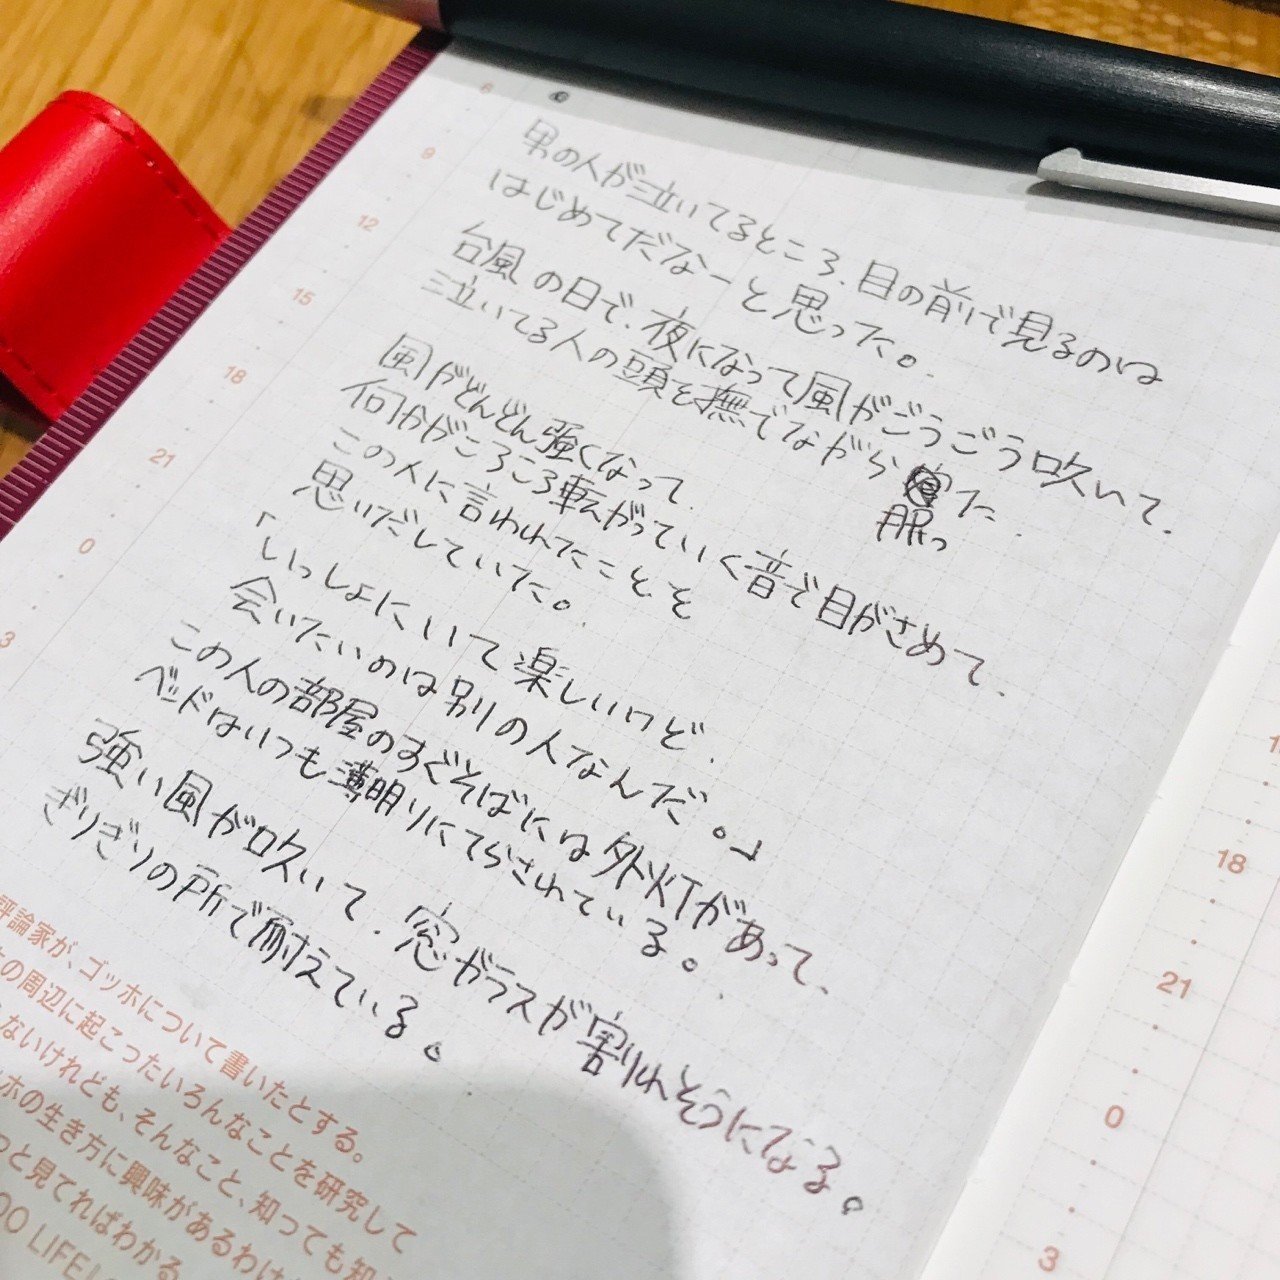 6
9
12
15
18
21
0
3
男の人が泣いてるところ、目の前で見るのは
はじめてだなーと思った。
台風の日で、夜になって風がごうごう吹いて、
泣いてる人の頭を撫でながら た、
眠っ
風がどんどん強くなって、
何かがころころ転がっていく音で目がさめて、
この人に言われたことを
思いだしていた。
「いっしょにいて楽しいけど、
会いたいのは別の人なんだ。」
この人の部屋のすぐそばには外灯があって、
ベッドはいつも薄明りにてらされている。
強い風が吹いて、窓ガラスが割れそうになる。
ぎりぎりの所で耐えている。
評論家が、ゴッホについて書いたとする。
の周辺に起こったいろんなことを研究して
ないけれども、そんなこと、知っても知
ホの生き方に興味があるわけ
っと見てればわかる
OO LIFE!
18
21
0
3